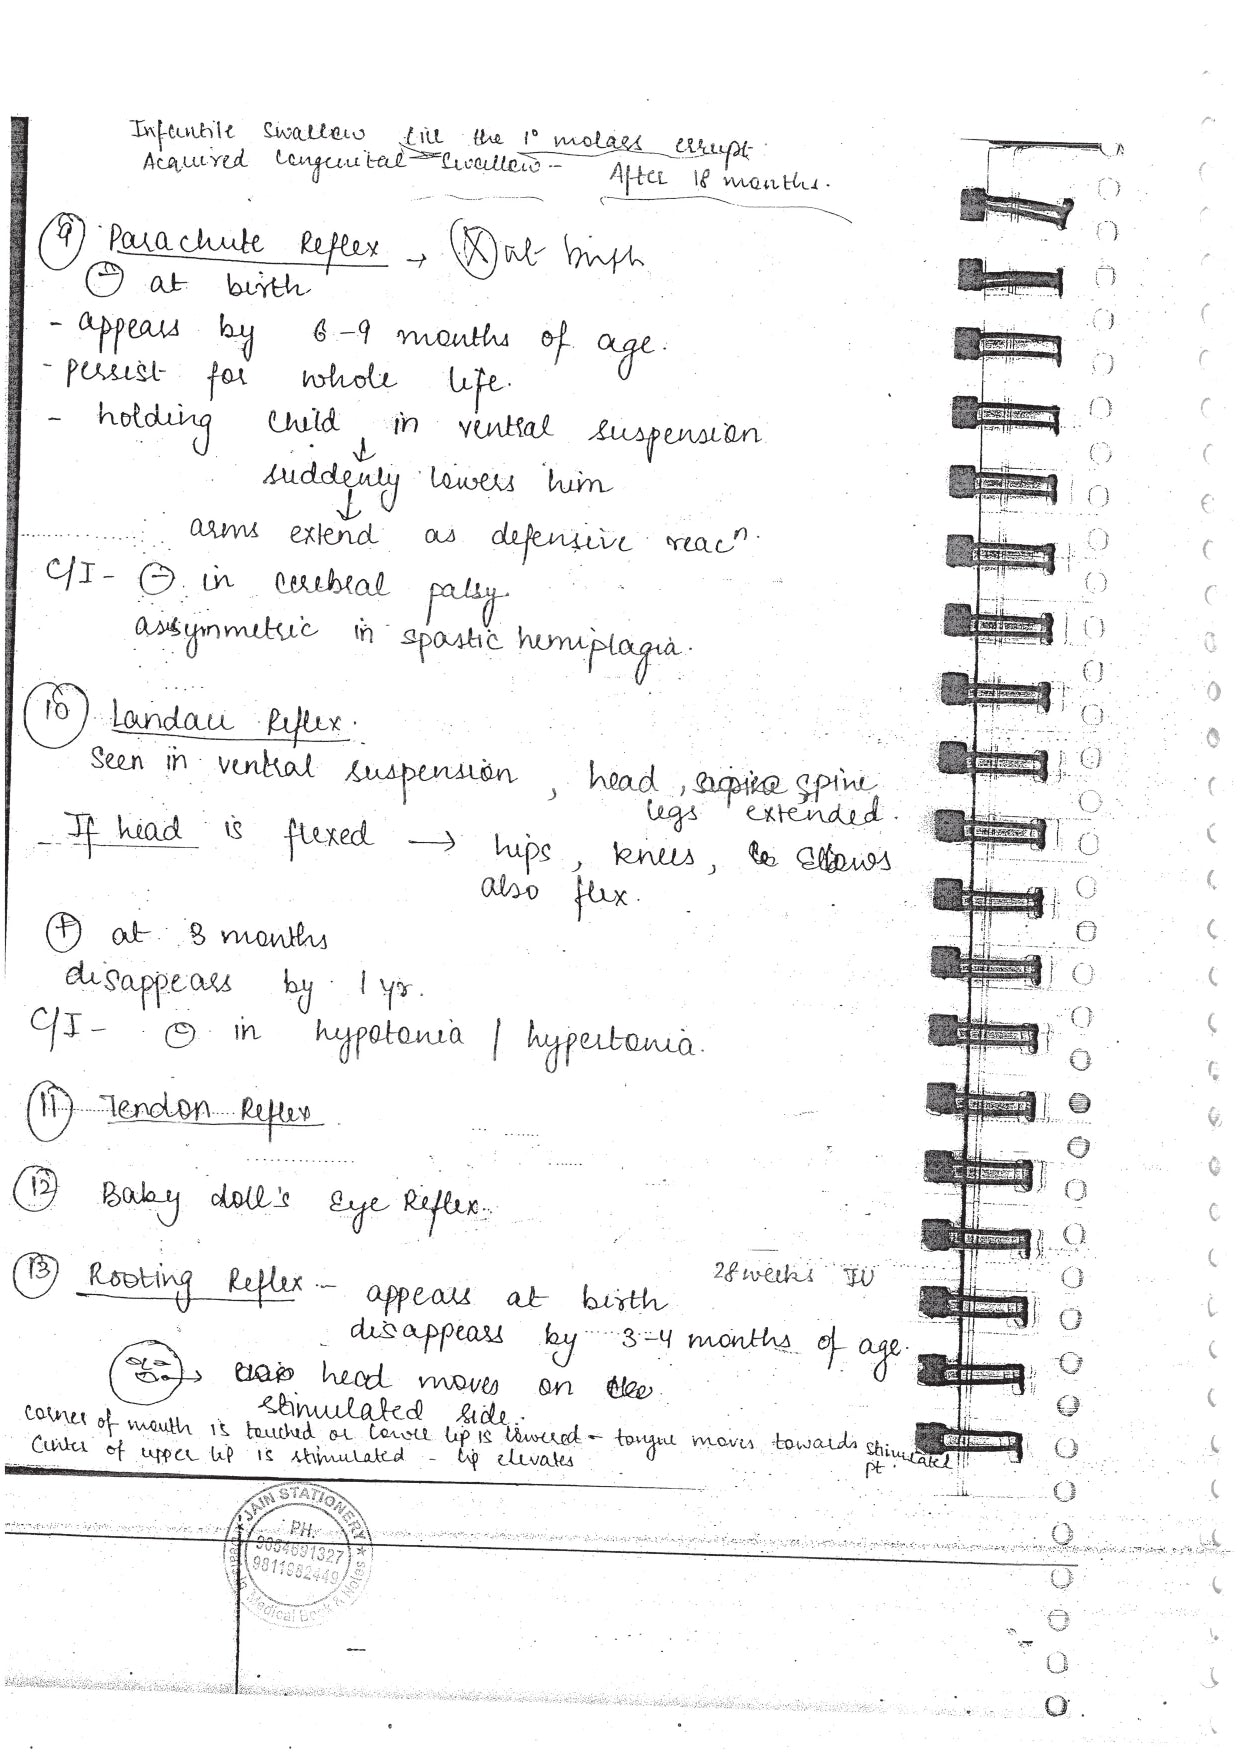 Infantile Swallow till the 1° molars errupt.
Acquired Congenital Swallow - After 18 months.
9 Parachute Reflex → X at birth
⊖ at birth
- appears by 6-9 months of age.
- persist for whole life.
- holding child in ventral suspension
↓
suddenly lowers him
↓
arms extend as defensive reacn.
C/I - ⊖ in cerebral palsy.
assymmetric in spastic hemiplagia.
10 Landau Reflex.
Seen in ventral suspension, head, spine
legs extended.
If head is flexed → hips, knees, Elbows
also flex.
⊕ at 3 months
disappears by 1 yr.
C/I - ⊖ in hypotonia / hypertonia.
11 Tendon Reflex
12 Baby doll's Eye Reflex.
13 Rooting Reflex - appears at birth 28 weeks IU
disappears by 3-4 months of age.
→ head moves on the
stimulated side.
corner of mouth is touched or lower lip is lowered - tongue moves towards stimulated
center of upper lip is stimulated - lip elevates pt.
JAIN STATIONERY
PH.
9811682449
Medical Book & Notes